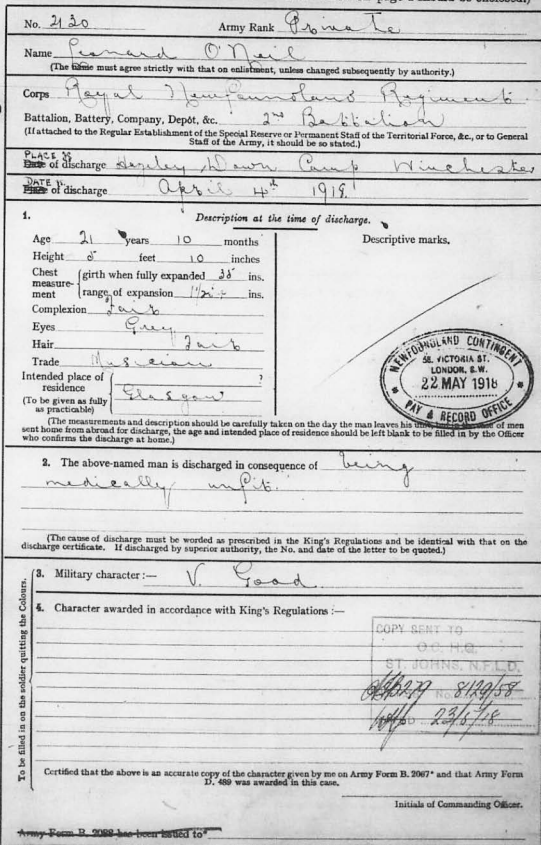 No. 2120 Army Rank Private
Name Leonard O'Neil
(The name must agree strictly with that on enlistment, unless changed subsequently by authority.)
Corps Royal Newfoundland Regiment.
Battalion, Battery, Company, Depôt, &c. 2nd Battalion
(If attached to the Regular Establishment of the Special Reserve or Permanent Staff of the Territorial Force, &c., or to General
Staff of the Army, it should be so stated.)
PLACE of discharge Hazeley Down Camp Winchester
DATE of discharge April 4th 1918.
1. Description at the time of discharge.
Age 21 years 10 months
Descriptive marks.
Height 5 feet 10 inches
Chest measure-ment girth when fully expanded 38 ins.
range of expansion ins.
Complexion Fair
Eyes Grey
Hair Fair
Trade Musician
Intended place of residence
Glasgow
(To be given as fully as practicable)
NEWFOUNDLAND CONTINGENT
58, VICTORIA ST.
LONDON, S.W.
22 MAY 1918
PAY & RECORD OFFICE
(The measurements and description should be carefully taken on the day the man leaves his unit, but in the case of men
sent home from abroad for discharge, the age and intended place of residence should be left blank to be filled in by the Officer
who confirms the discharge at home.)
2. The above-named man is discharged in consequence of being
medically unfit.
(The cause of discharge must be worded as prescribed in the King's Regulations and be identical with that on the
discharge certificate. If discharged by superior authority, the No. and date of the letter to be quoted.)
To be filled in on the soldier quitting the Colours.
3. Military character:— V. Good
4. Character awarded in accordance with King's Regulations:—
COPY SENT TO
O.C. H.Q.
ST. JOHNS, N.F.L.D.
No. 8129/58
23/5/18
Certified that the above is an accurate copy of the character given by me on Army Form B. 2067* and that Army Form
D. 489 was awarded in this case.
Initials of Commanding Officer.
Army Form B. 2088 has been issued to*